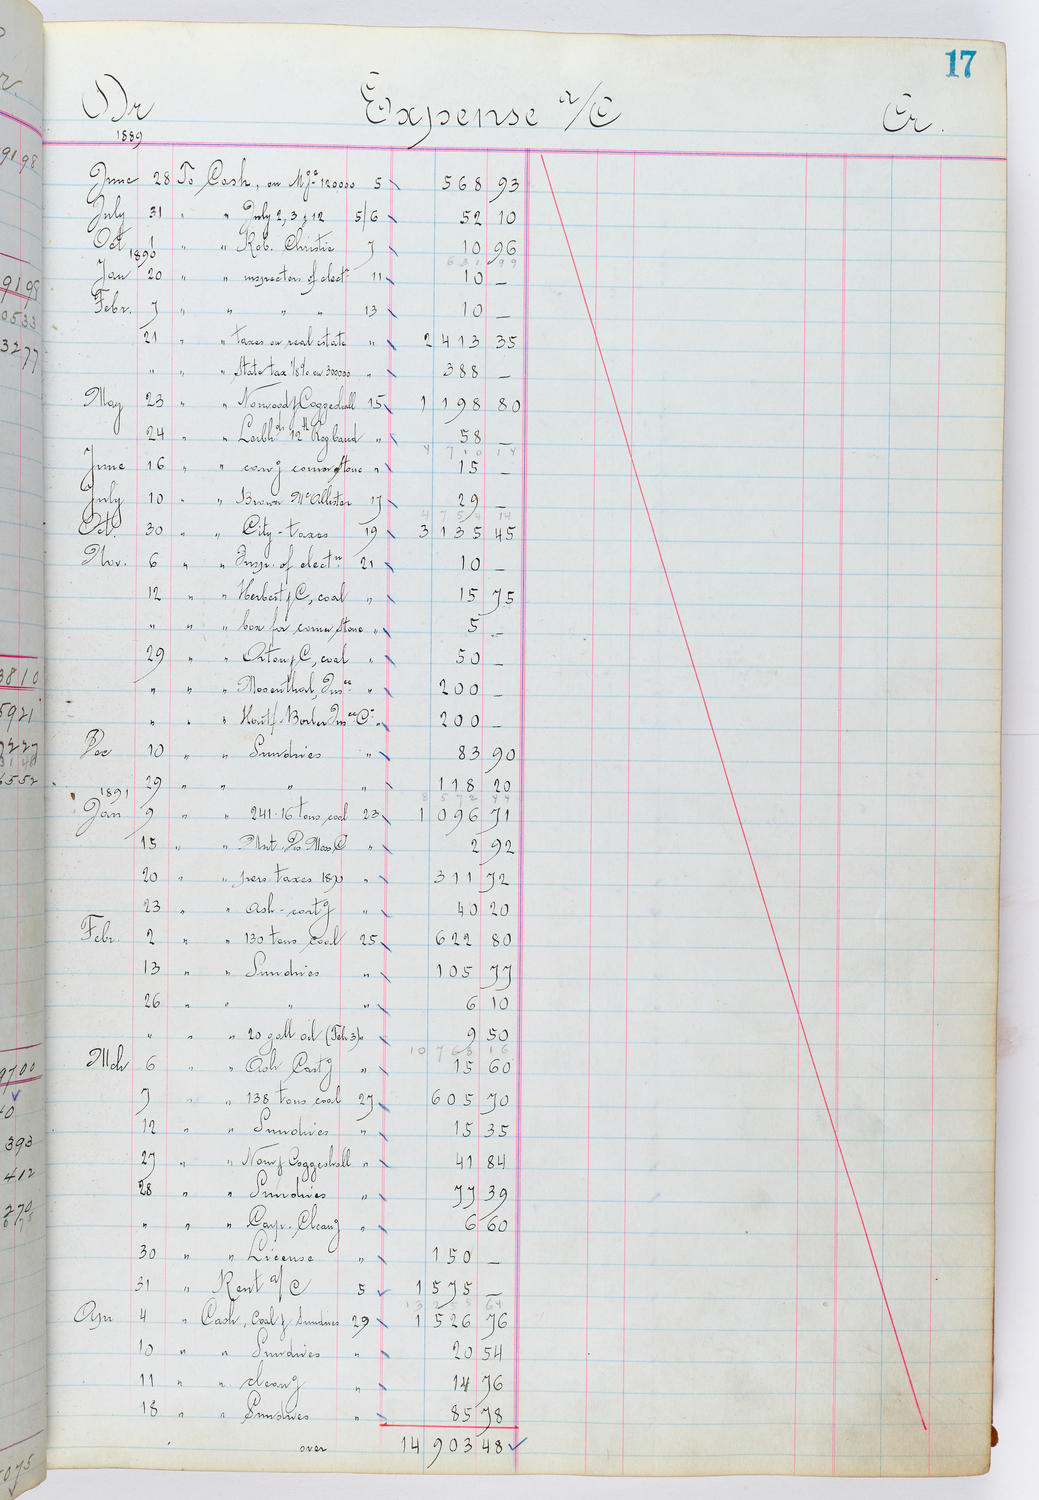 17
Dr Expense a/C Cr.
1889
June 28 To Cash, on Mge 120000 5 568 93
July 31 " " July 2, 3 & 12 5/6 52 10
Oct 1 " " Rob. Christie 7 10 96
631 99
1890
Jan 20 " " inspectors of elect. 11 10 —
Febr. 7 " " " " 13 10 —
21 " " taxes on real estate " 2 413 35
" " " State tax 1/8% on 300000 " 388 —
May 23 " " Norwood & Coggeshall 15 1 198 80
24 " " 12th Reg. band " 58 —
4 710 14
June 16 " " corner stone " 15 —
July 10 " " Brown McAllister 17 29 —
4 754 14
Oct. 30 " " City-taxes 19 3 135 45
Nov. 6 " " Insp. of electn 21 10 —
12 " " Herbert & C, coal " 15 75
" " " box for corner stone " 5 —
29 " " Orton & C, coal " 50 —
" " " Mosenthal, Insce " 200 —
" " " Insce Co " 200 —
Dec 10 " " Sundries " 83 90
29 " " " " 118 20
8 572 44
1891
Jan 9 " " 241.16 tons coal 23 1 096 71
15 " " " 2 92
20 " " pers. taxes 1890 " 311 72
23 " " Ash-cartg " 40 20
Febr. 2 " " 130 tons coal 25 622 80
13 " " Sundries " 105 77
26 " " " " 6 10
" " " 20 gall oil (Feb 3) " 9 50
10 768 16
Mch 6 " " Ash Cartg " 15 60
7 " " 138 tons coal 27 605 70
12 " " Sundries " 15 35
27 " " Norw & Coggeshall " 41 84
28 " " Sundries " 77 39
" " " Carp. Cleang " 6 60
30 " " License " 150 —
31 " Rent a/C 5 1 575 —
13 255 64
Apr 4 " Cash, Coal & Sundries 29 1 526 76
10 " " Sundries " 20 54
11 " " cleang " 14 76
18 " " Sundries " 85 78
over 14 903 48